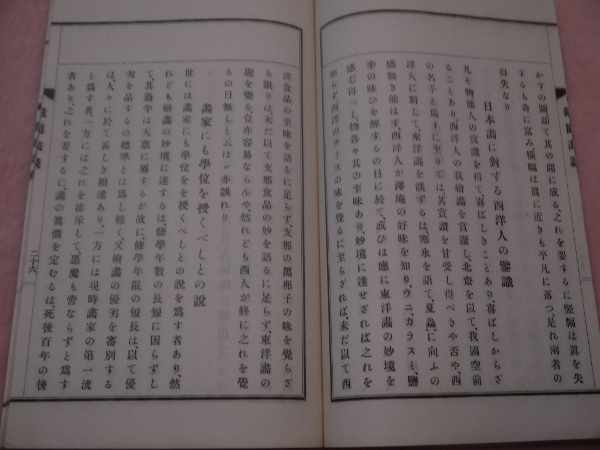 かすの獘却て其の間に成る、之れを要するに堅幅は眞を失
するも奇に富み橫幅は眞に近きも平凡に落つ、是れ兩者の
得失なり
日本畵に對する西洋人の鑒識
凡そ物他人の賞讃を得て、喜ばしきことあり、喜ばしからざ
ることあり、西洋人の我繪畵を賞讃し、北齋を以て、我國空前
の名手と爲すに至りては、其賞讃を甘受し得べきや否や、西
洋人に對して東洋畵を談ずるは、寒氷を語て、夏蟲に向ふの
感無き能はず、西洋人が澤庵の好味を知り、ウニ、カラスミ、鹽
辛の味ひを解するの日に於て、或ひは應に東洋畵の妙境を
感じ得べし、物各々其の至味あり、妙境に達せざれば之れを
知らず、西洋のチースの味を覺るに至らざれば、未だ以て西
洋食品の至味を語るに足らず、支那の
味を覺らざ
る限りは、未だ以て支那食品の妙を語るに足らず、東洋畵の
趣を覺る、豈亦容易ならんや、然れども西人が終に之れを覺
るの日無しと云はゞ亦誤れり
畵家にも學位を授くべしとの說
世には畵家にも學位を授くべしとの說を爲す者あり、然
れども繪畵の妙境に達するは、修學年數の長短に因らずし
て、其過半は天稟に屬するが故に、修學年限の短長は、以て優
劣を品するの標準とは爲し難く、又繪畵の優劣を審別する
は、人々に於て甚しき相違あり、一方には現時畵家の第一流
と爲す者、一方には之れを排斥して、惡魔も啻ならずと爲す
者あり、之れを要するに、畵の眞價を定むるは、死後百年の後
二十六